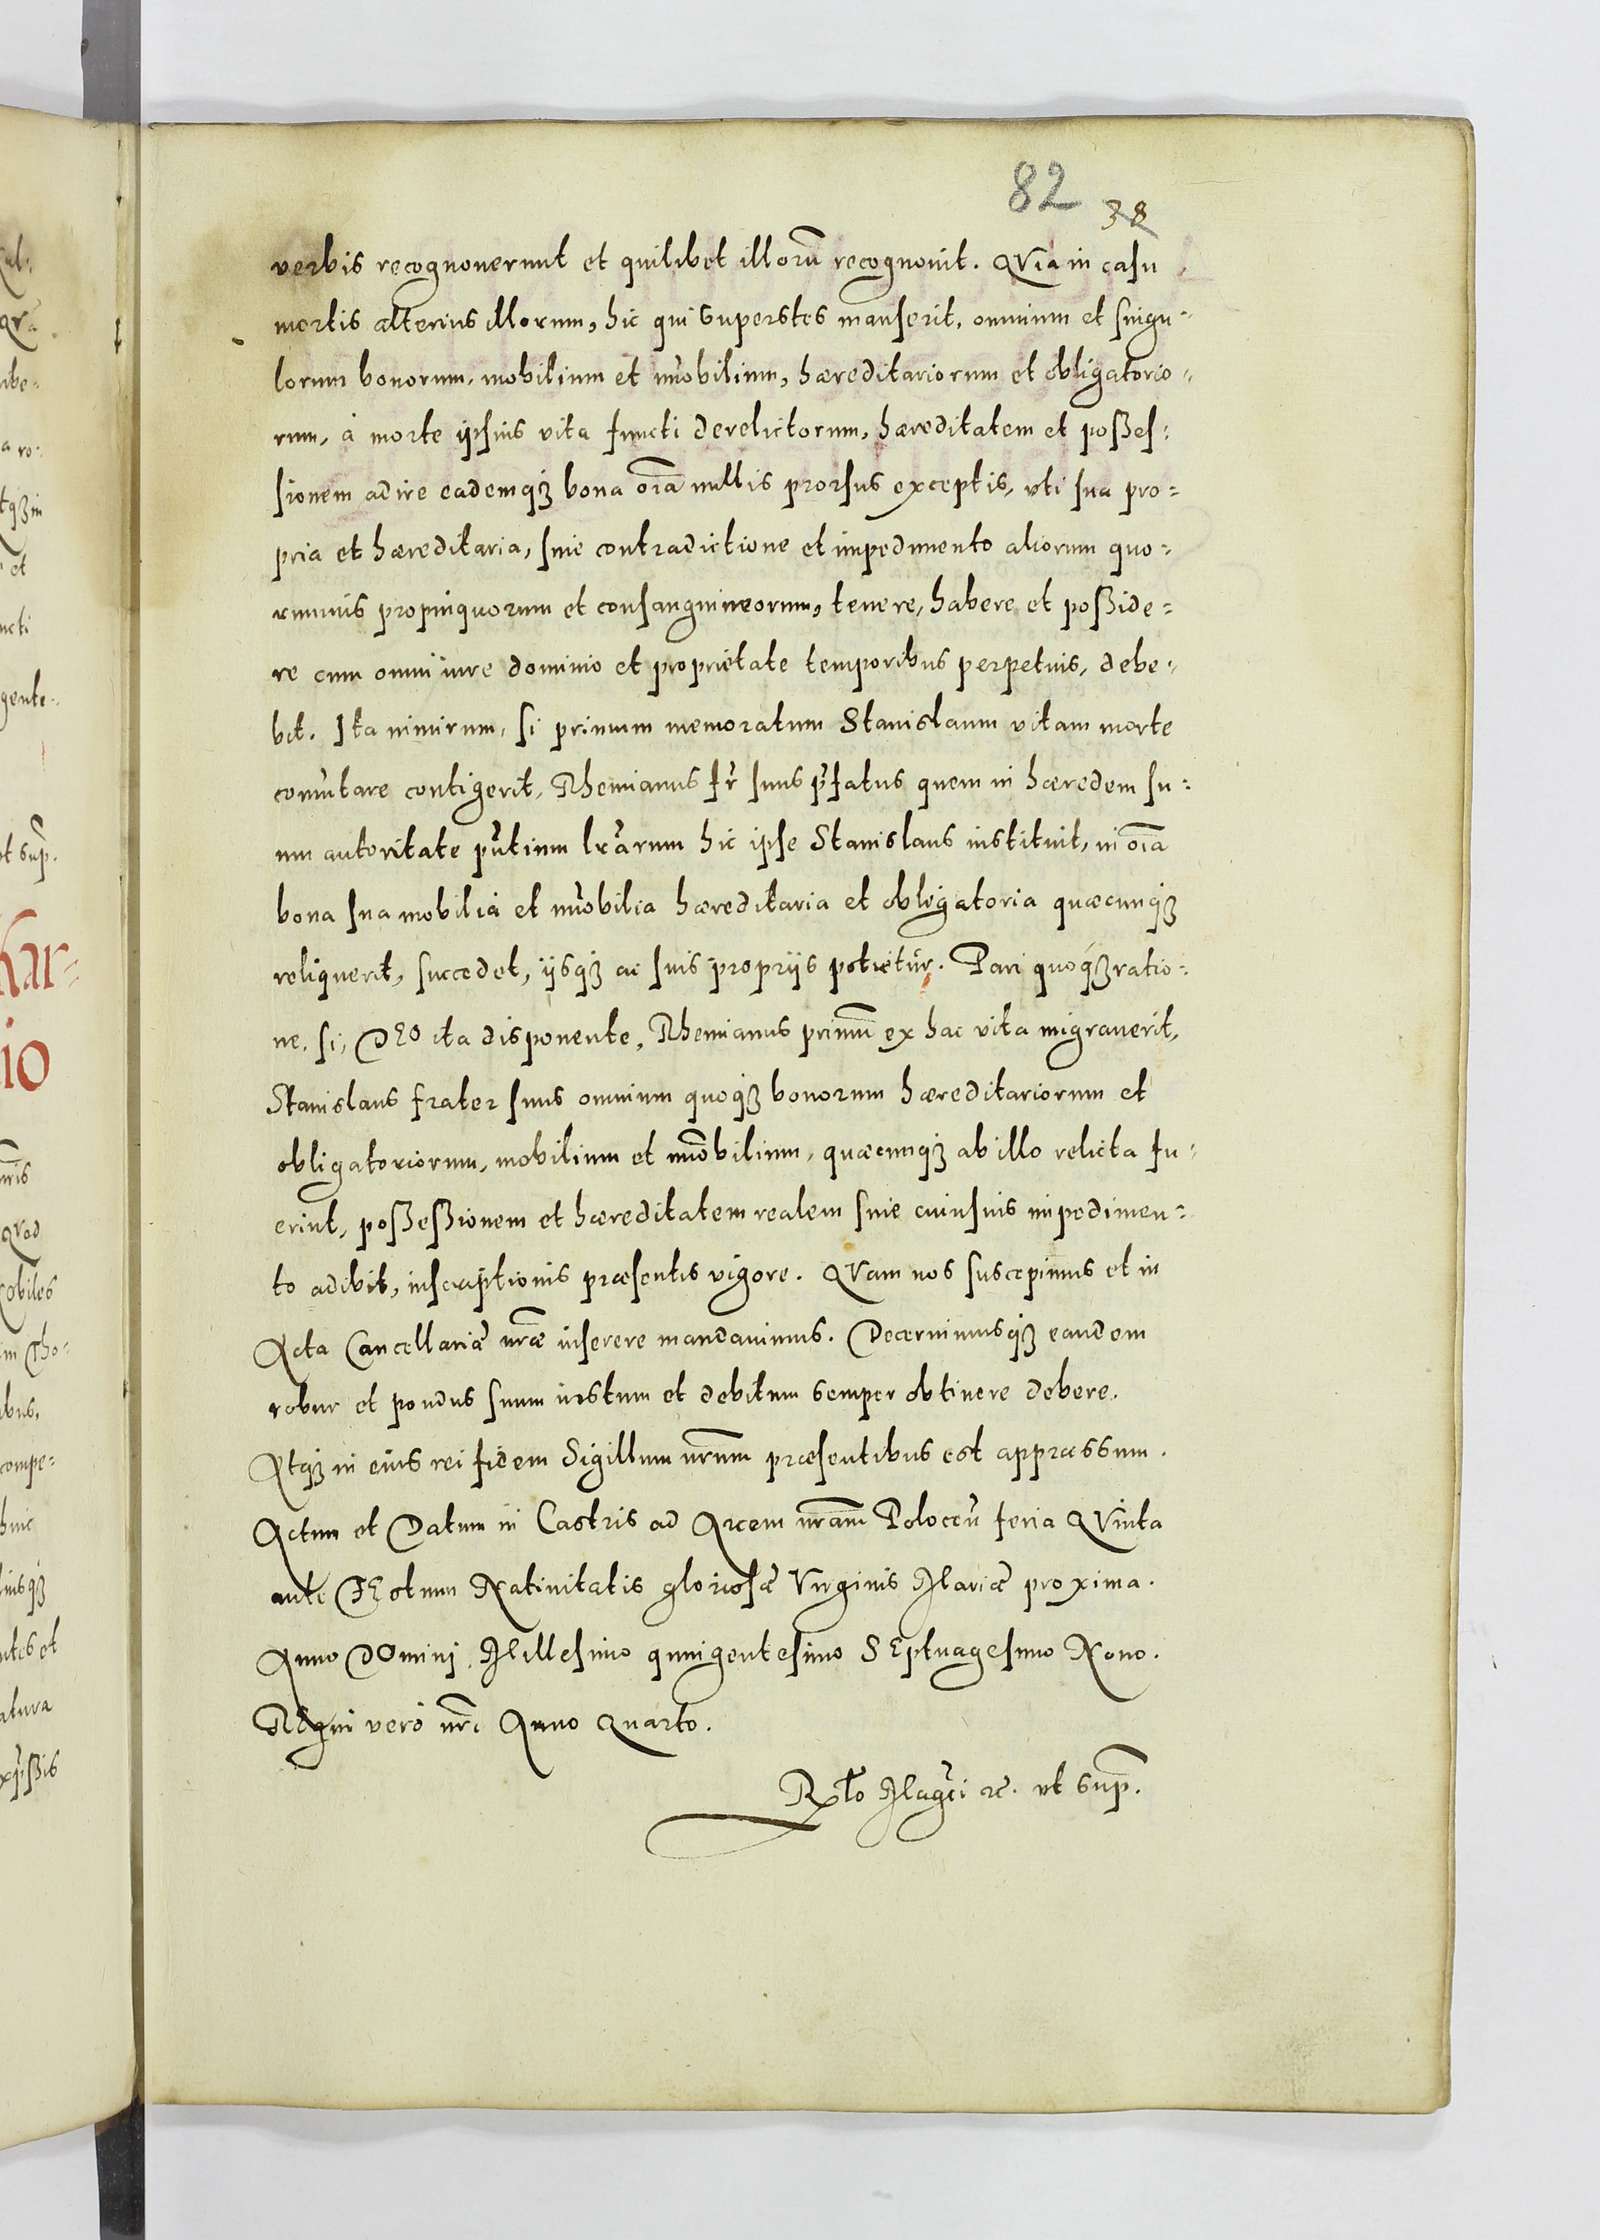 82 38
verbis recognouerunt et quilibet illorũ recognouit. QVia in casu
mortis alterius illorum, hic qui superstes manserit, omnium et singu-
lorum bonorum, mobilium et im̃obilium, hæreditariorum et obligatorio-
rum, à morte ipsius vita functi derelictorum, hæreditatem et posses-
sionem adire eademqꝫ bona oĩa nullis prorsus exceptis, vti sua pro-
pria et hæreditaria, sine contradictione et impedimento aliorum quo-
rumuis propinquorum et consanguineorum, tenere, habere et posside-
re cum omni iure dominio et proprietate temporibus perpetuis, debe-
bit. Ita nimirum, si primum memoratum Stanislaum vitam morte
com̃utare contigerit, Themianus fr̃ suus p̃fatus quem in hæredem su-
um autoritate p̃ntium lr̃arum hic ipse Stanislaus instituit, in oĩa
bona sua mobilia et im̃obilia hæreditaria et obligatoria quæcunqꝫ
reliquerit, succedet, ijsqꝫ ac suis proprijs potietur. Pari quoqꝫ ratio-
ne, si, DEO ita disponente, Themianus primũ ex hac vita migrauerit,
Stanislaus frater suus omnium quoqꝫ bonorum hæreditariorum et
obligatoriorum, mobilium et im̃obilium, quæcunqꝫ ab illo relicta fu-
erint, possessionem et hæreditatem realem sine cuiusuis impedimen-
to adibit, inscriptionis præsentis vigore. QVam nos suscepimus et in
Acta Cancellariæ nr̃æ inserere mandauimus. Decernimusqꝫ eandem
robur et pondus suum iustum et debitum semper obtinere debere.
Atqꝫ in eius rei fidem Sigillum nr̃um præsentibus est appræssum.
Actum et Datum in Castris ad Arcem nr̃am Polocen̄ feria QVinta
ante FEstum Natiuitatis gloriosæ Virginis Mariæ proxima.
Anno DOmini Millesimo quingentesimo SEptuagesimo Nono.
REgni verò nr̃i Anno Quarto.
Rłto Mag̃ci ꝛc. vt sup̃.